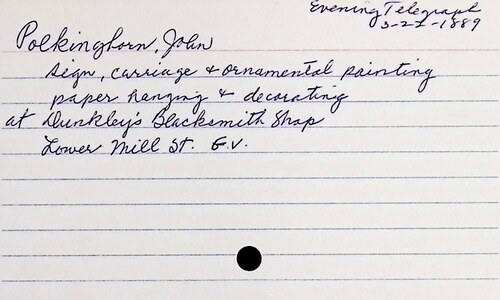 Evening Telegraph
3-22-1889
Polkinghorn, John
sign, carriage & ornamental painting
paper hanging & decorating
at Dunkley's Blacksmith Shop
Lower Mill St. G.V.